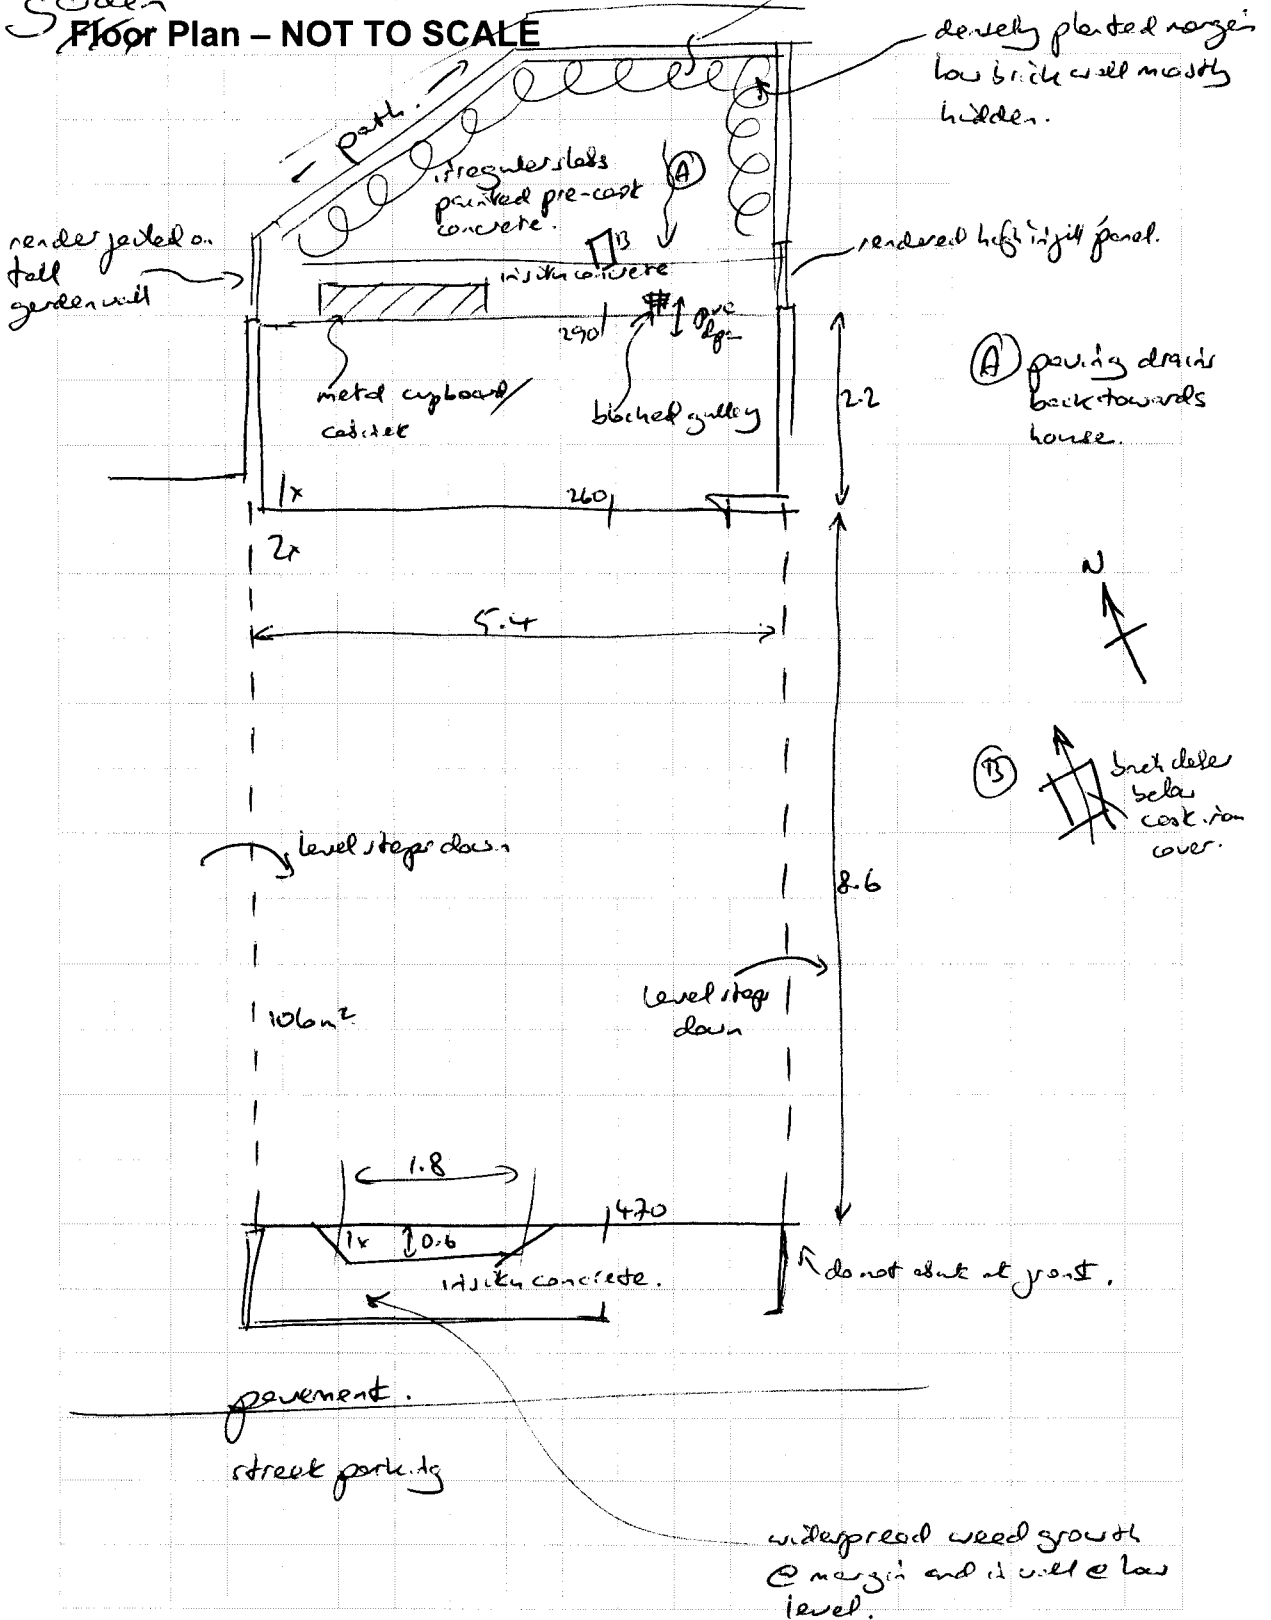 Garden
Floor Plan – NOT TO SCALE
densely planted margin
low brick wall mostly
hidden.
← path. →
irregular slabs
painted pre-cast
concrete.
A
B
insitu concrete
render failed on
tall
garden wall
rendered high infill panel.
290
pvc
dpc
metal cupboard/
cabinet
blocked gulley
2.2
A paving drains
back towards
house.
1x
260
2x
5.4
N
B brick
below
cast iron
cover.
level steps down
8.6
level steps
down
106m²
1.8
470
1x
0.6
insitu concrete.
do not abut at front.
pavement.
street parking
widespread weed growth
@ margin and in wall @ low
level.